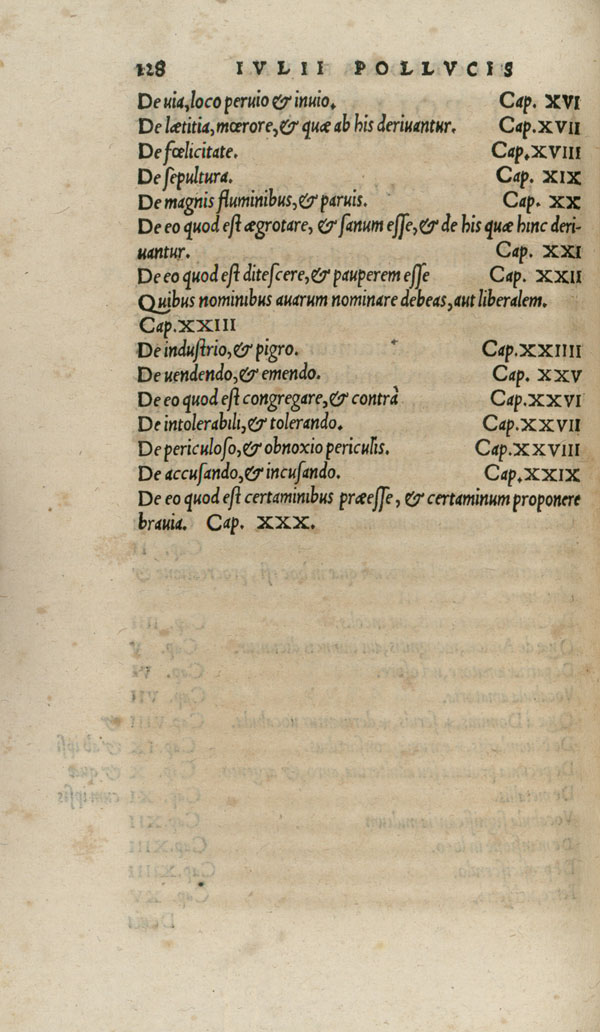 128 IVLII POLLVCIS
De uia, loco peruio & inuio. Cap. XVI
De lætitia, mœrore, & quæ ab his deriuantur. Cap. XVII
De fœlicitate. Cap. XVIII
De ſepultura. Cap. XIX
De magnis fluminibus, & paruis. Cap. XX
De eo quod eſt ægrotare, & ſanum eſſe, & de his quæ hinc deri-
uantur. Cap. XXI
De eo quod eſt diteſcere, & pauperem eſſe Cap. XXII
Quibus nominibus auarum nominare debeas, aut liberalem.
Cap. XXIII
De induſtrio, & pigro. Cap. XXIIII
De uendendo, & emendo. Cap. XXV
De eo quod eſt congregare, & contrà Cap. XXVI
De intolerabili, & tolerando. Cap. XXVII
De periculoſo, & obnoxio periculis. Cap. XXVIII
De accuſando, & incuſando. Cap. XXIX
De eo quod eſt certaminibus præeſſe, & certaminum proponere
brauia. Cap. XXX.